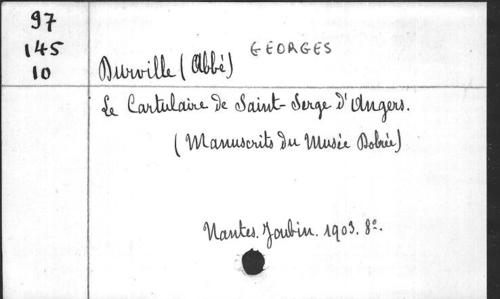 97
145
10
Durville (Abbé) GEORGES
Le Cartulaire de Saint-Serge d'Angers.
(Manuscrits du Musée Dobrée)
Nantes. Joubin. 1903. 8º.